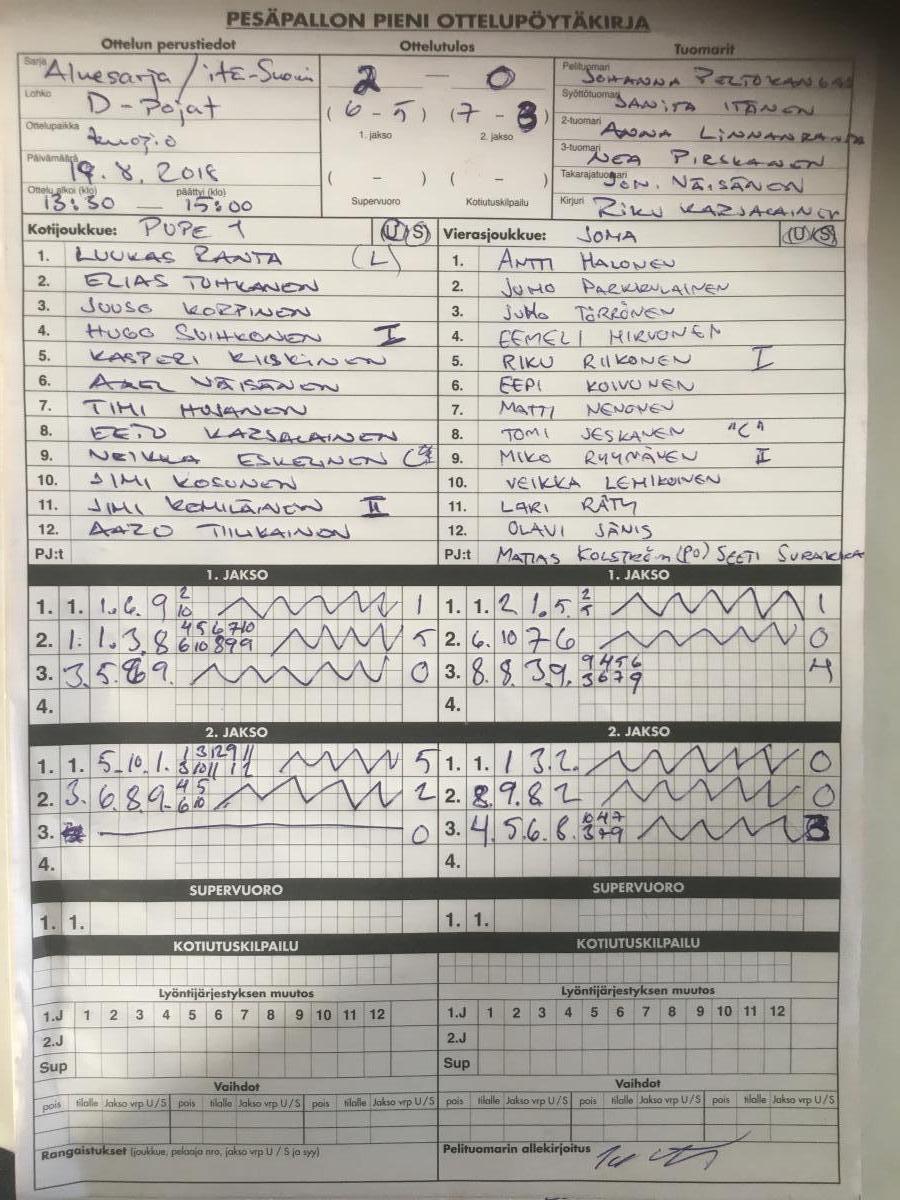 PESÄPALLON PIENI OTTELUPÖYTÄKIRJA
Ottelun perustiedot
Ottelutulos
Tuomarit
Sarja Aluesarja / itä-Suomi
2 — 0
Pelituomari JOHANNA PELTOKANGAS
Lohko D-Pojat
(6 - 5) (7 - 3)
Syöttötuomari SANITA ITÄNEN
Ottelupaikka Kuopio
1. jakso 2. jakso
2-tuomari ANNA LINNANRANTA
Päivämäärä 19.8.2018
( - ) ( - )
3-tuomari NEA PIRSKANEN
Takarajatuomari JON. NÄISÄNEN
Ottelu alkoi (klo) päättyi (klo)
13:30 — 15:00
Supervuoro Kotiutuskilpailu
Kirjuri RIKU KARJALAINEN
Kotijoukkue: PUPE 1 U S
1. LUUKAS RANTA (L)
2. ELIAS TUHKANEN
3. JUUSO KORPINEN
4. HUGO SUIHKONEN I
5. KASPERI KIISKINEN
6. AXEL NÄISÄNEN
7. TIMI HUJANEN
8. EETU KARJALAINEN
9. NEIKKA ESKELINEN
10. JIMI KOSUNEN
11. JIMI KEMILÄINEN II
12. AARO TIILIKAINEN
PJ:t
Vierasjoukkue: JOMA U S
1. ANTTI HALONEN
2. JUHO PARKKULAINEN
3. JUHO TÖRRÖNEN
4. EEMELI HIRVONEN
5. RIKU RIIKONEN I
6. EEPI KOIVUNEN
7. MATTI NENONEN
8. TOMI JESKANEN "C"
9. MIKO RYYMÄNEN II
10. VEIKKA LEMIKOINEN
11. LARI RÄTY
12. OLAVI JÄNIS
PJ:t MATIAS KOLSTRÖM (PO) SEETI SURAKKA
1. JAKSO
1. 1. 1. 6. 9 2 10 1
2. 1. 1. 3. 8 4 5 6 7 10 6 10 8 9 9 5
3. 3. 5. 8 9. 0
4.
1. JAKSO
1. 1. 2 1. 5. 2 5 1
2. 6. 10 7 6 0
3. 8. 8 3 9. 9 4 5 6 3 6 7 9 4
4.
2. JAKSO
1. 1. 5. 10. 1. 1 3 12 9 11 3 10 11 1 2 5
2. 3. 6. 8. 9. 4 5 6 10 2
3. 0
4.
2. JAKSO
1. 1. 1 3. 2. 0
2. 8. 9. 8 2 0
3. 4. 5. 6. 8. 10 4 7 3 7 9 3
4.
SUPERVUORO
1. 1.
SUPERVUORO
1. 1.
KOTIUTUSKILPAILU
KOTIUTUSKILPAILU
Lyöntijärjestyksen muutos
1.J 1 2 3 4 5 6 7 8 9 10 11 12
2.J
Sup
Lyöntijärjestyksen muutos
1.J 1 2 3 4 5 6 7 8 9 10 11 12
2.J
Sup
Vaihdot
pois tilalle Jakso vrp U/S pois tilalle Jakso vrp U/S pois tilalle Jakso vrp U/S
Vaihdot
pois tilalle Jakso vrp U/S pois tilalle Jakso vrp U/S pois tilalle Jakso vrp U/S
Rangaistukset (joukkue, pelaaja nro, jakso vrp U / S ja syy)
Pelituomarin allekirjoitus